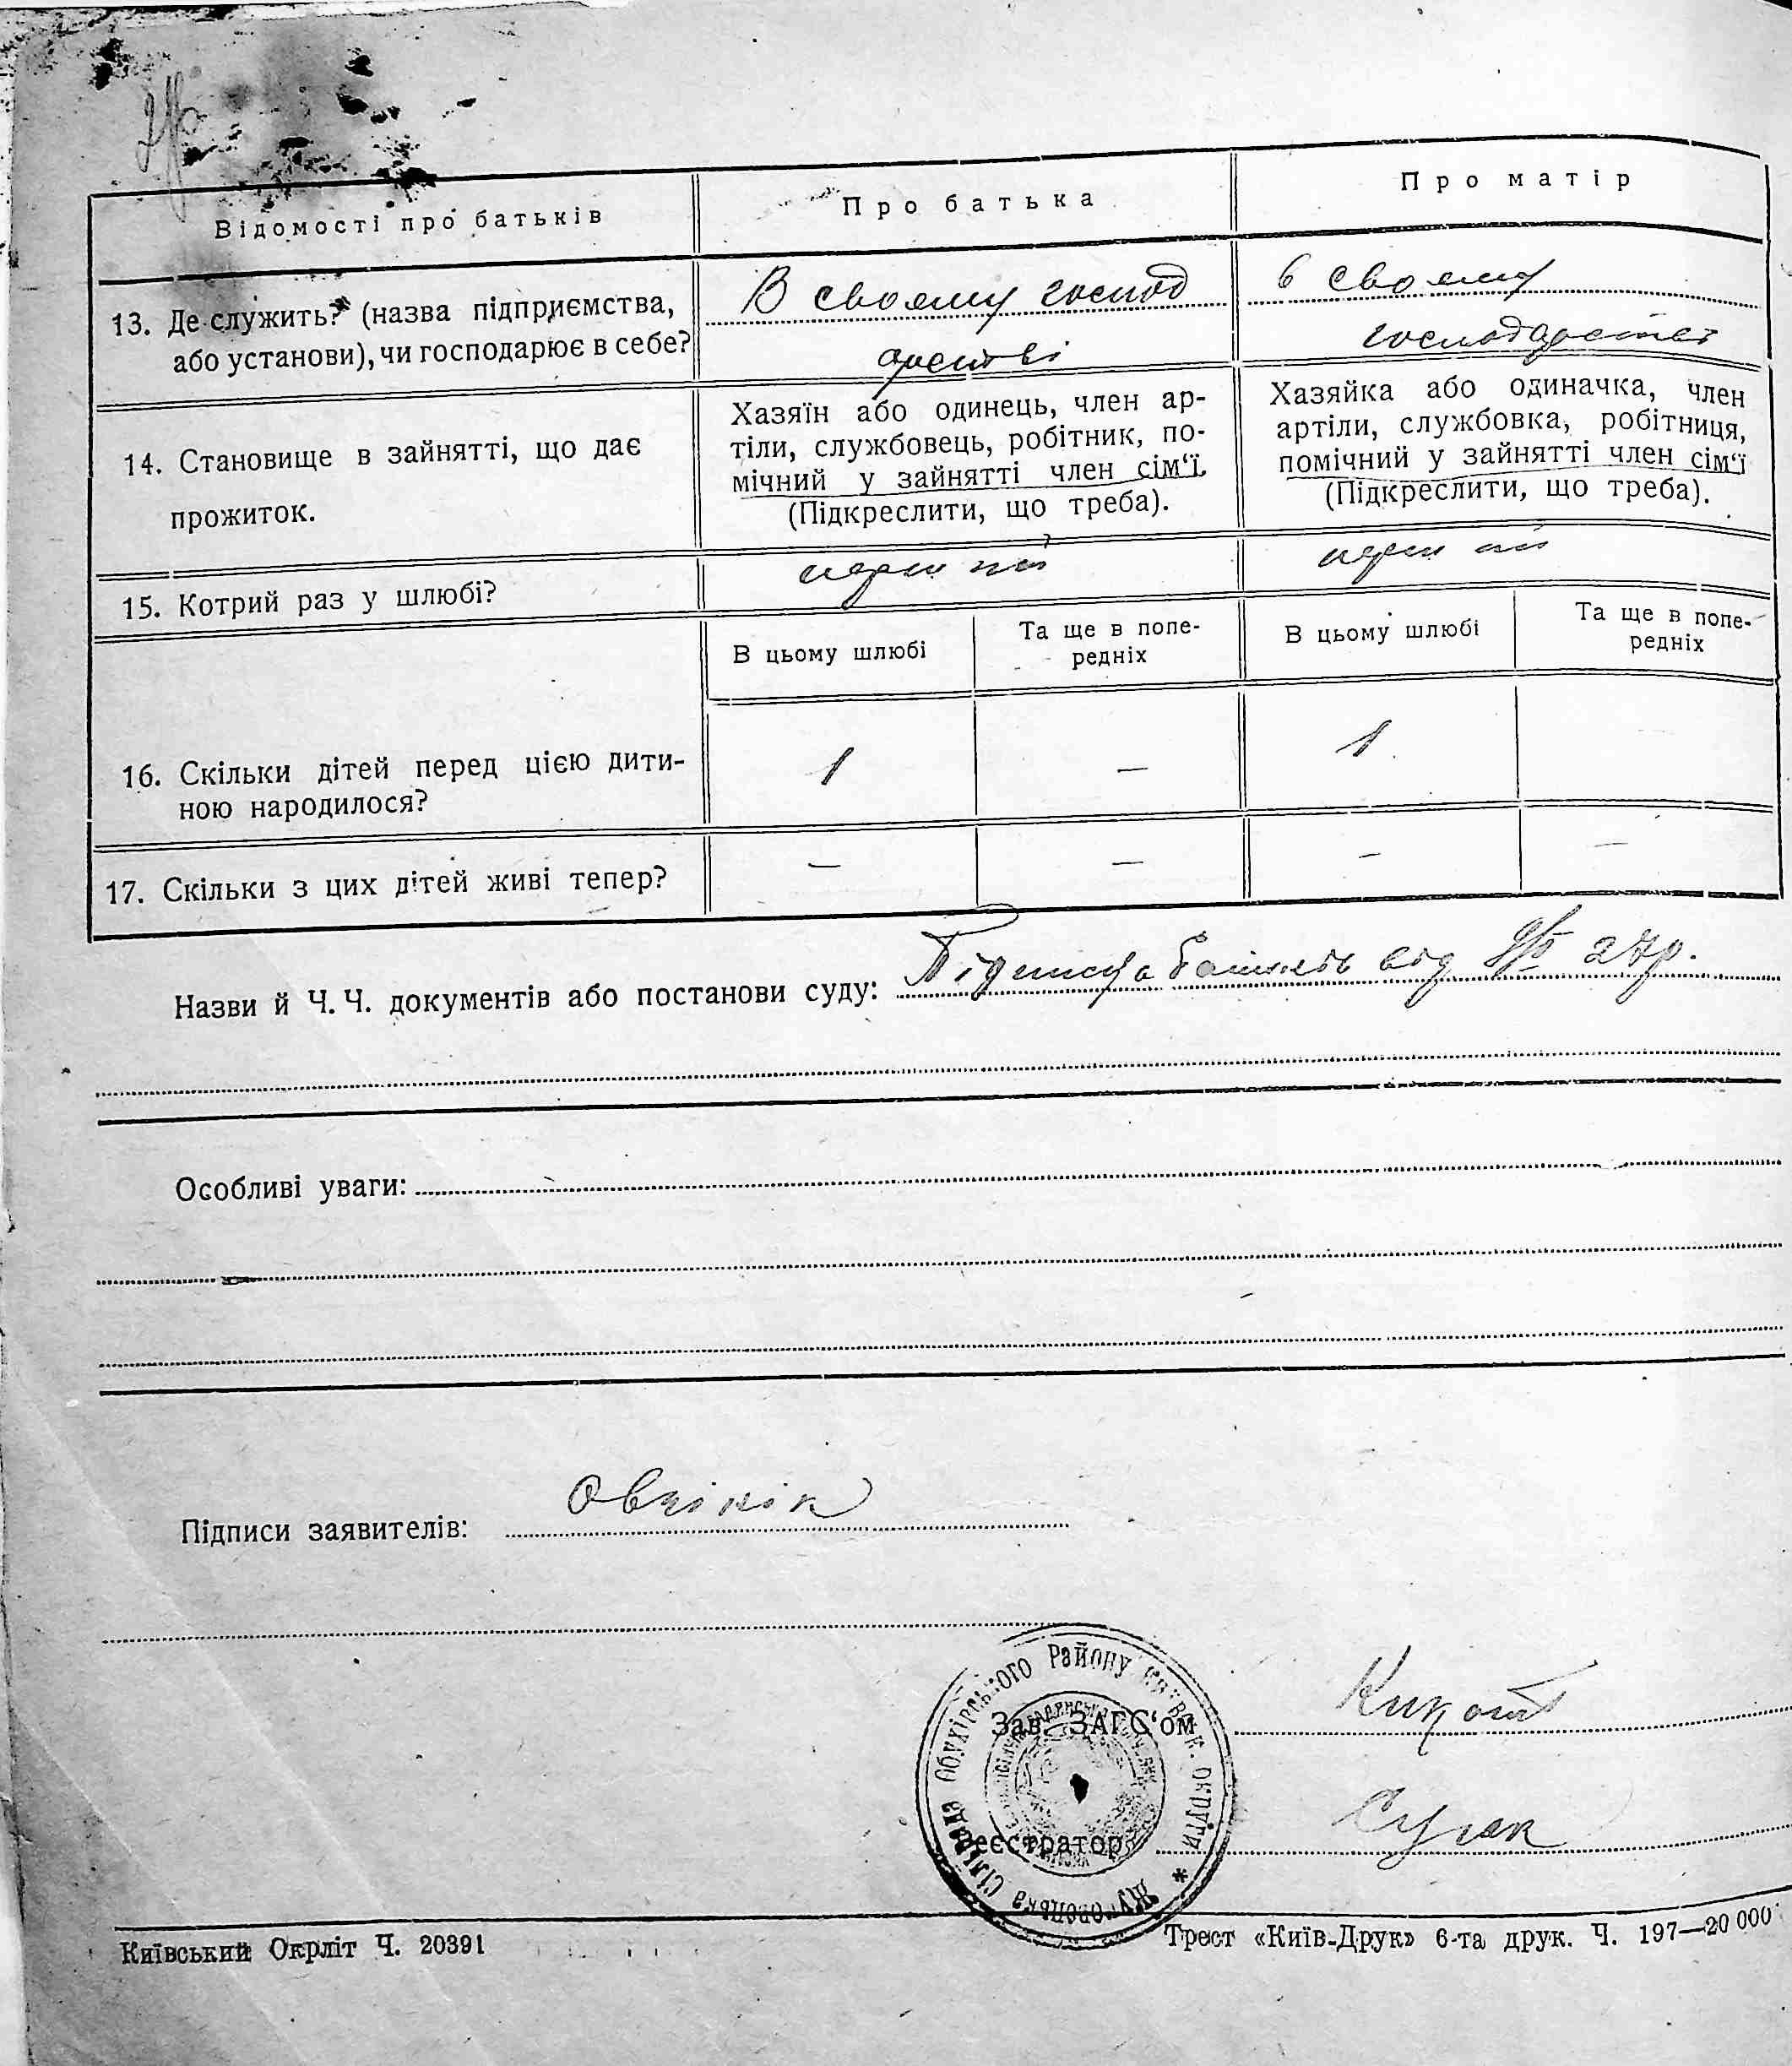 Відомості про батьків
Про батька
Про матір
13. Де служить? (назва підприємства,
або установи), чи господарює в себе?
В своєму господ
арстві
в своєму
господарстві
14. Становище в зайнятті, що дає
прожиток.
Хазяїн або одинець, член ар-
тіли, службовець, робітник, по-
мічний у зайнятті член сім‘ї.
(Підкреслити, що треба).
Хазяйка або одиначка, член
артіли, службовка, робітниця,
помічний у зайнятті член сім‘ї
(Підкреслити, що треба).
15. Котрий раз у шлюбі?
перший
перший
В цьому шлюбі
Та ще в попе-
редніх
В цьому шлюбі
Та ще в попе-
редніх
16. Скільки дітей перед цією дити-
ною народилося?
1
—
1
17. Скільки з цих дітей живі тепер?
—
—
—
—
Назви й Ч. Ч. документів або постанови суду: Підписка батьків від 27р.
Особливі уваги:
Підписи заявителів: Овчінік
Обухівського Району Київськ. округи
Зав. ЗАГС‘ом
Реєстратор
Київський Окрліт Ч. 20391
Трест «Київ-Друк» 6-та друк. Ч. 197—20 000